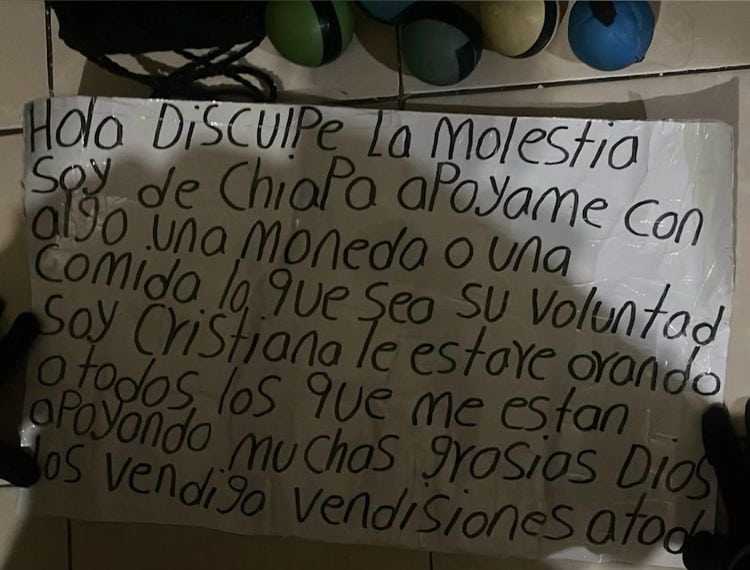 Hola DiSCUlPe La Molestia
Soy de ChiaPa aPoyame con
algo una Moneda o una
Comida lo que sea su voluntad
Soy Cristiana le estare orando
a todos los que me estan
aPoyando muchas grasias Dios
los vendiga vendisiones a tod